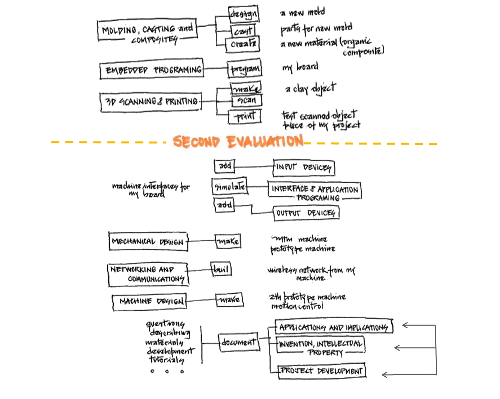 design a new mold
MOLDING, CASTING and cast parts for new mold
COMPOSITES create a new material (organic
composite)
EMBEDDED PROGRAMING program my board
make a clay object
3D SCANNING & PRINTING scan
print test scanned object
piece of my project
SECOND EVALUATION
add INPUT DEVICES
machine interfaces for simulate INTERFACE & APPLICATION
my board PROGRAMING
add OUTPUT DEVICES
MECHANICAL DESIGN make MTM machine
prototype machine
NETWORKING AND wireless network from my
COMMUNICATIONS machine
MACHINE DESIGN make 2th prototype machine
motion control
questions APPLICATIONS AND IMPLICATIONS
describing
materials document INVENTION, INTELLECTUAL
development PROPERTY
tutorials
PROJECT DEVELOPMENT